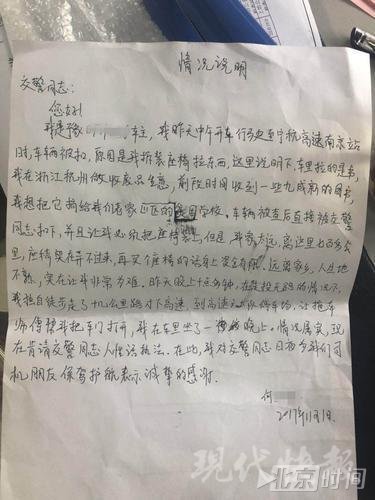 情况说明
交警同志:
您好!
我是豫 车主,我昨天中午开车行驶至宁杭高速南京站
时,车辆被扣,原因是我拆装座椅拉东西,这里说明下,车里拉的是书,
我在浙江杭州做收废品生意,前段时间收到一些九成新的图书,
我想把它捐给我们老家 学校,车辆被查后直接被交警
同志扣下,并且让我必须把座椅装上,但是我家太远,离这里七百多公
里,座椅实在弄不过来,再买个座椅的话身上资金有限,远离家乡,人生地
不熟,实在让我非常为难,昨天晚上十点多钟,在没找无路的情况下,
我独自徒步走了 公里路对下高速,到高速 队停车场,让拖车
师傅帮我把车门打开,我在车里坐了一 晚上。情况属实,现
在肯请交警同志人性话执法。在此,我对交警同志日夜为我们司
机朋友保驾护航表示诚挚的感谢。
何
2017年11月1日
现代快报
北京时间